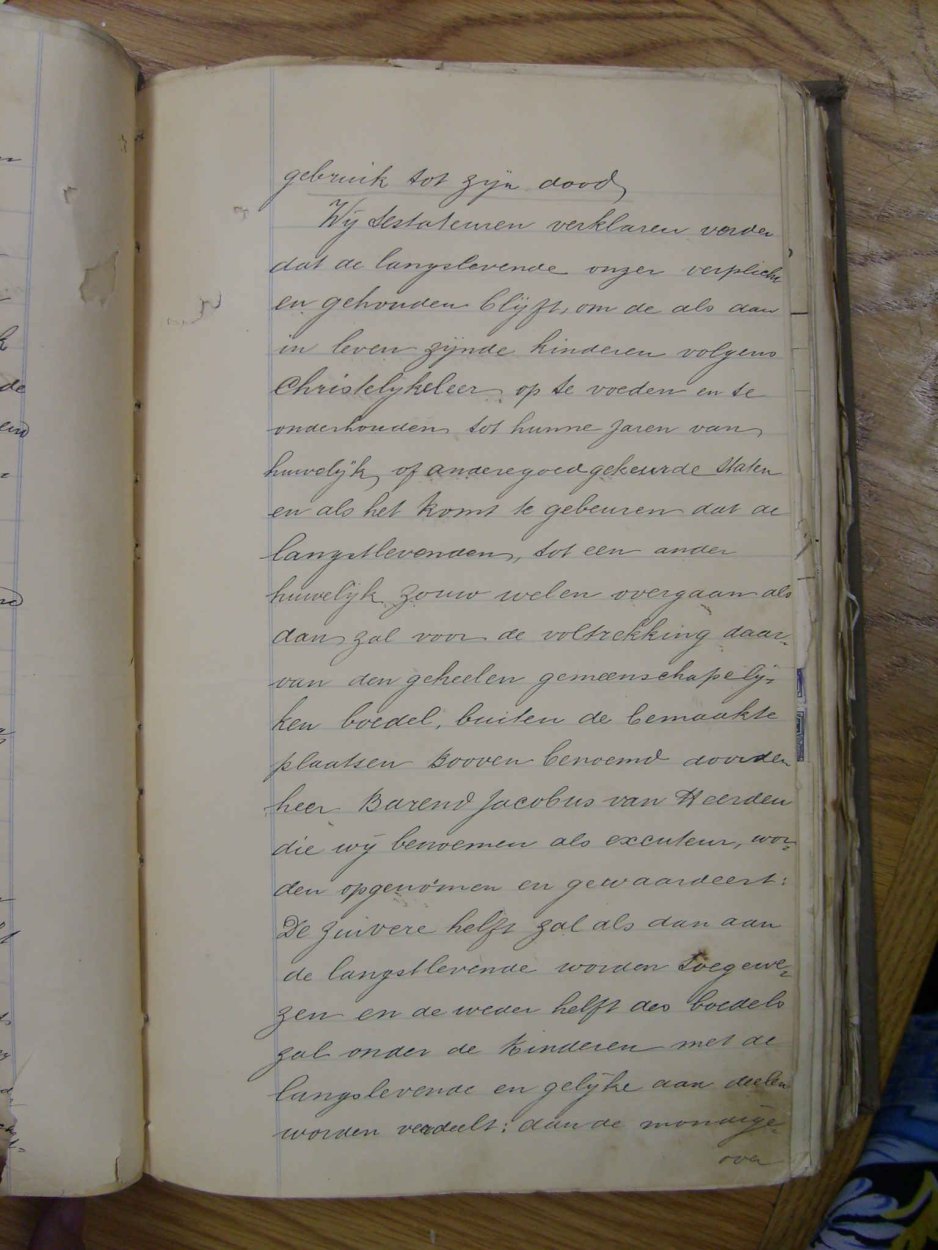 gebruik tot zijn dood
Wij Testateuren verklaren verder
dat de langslevende onzer verplicht
en gehouden blijft, om de als dan
in leven zijnde kinderen volgens
Christelykeleer op te voeden en te
onderhouden tot hunne jaren van
huwelijk of andere goedgekeurde staten
en als het komt te gebeuren dat de
langstlevenden, tot een ander
huwelijk zouw welen overgaan als
dan zal voor de voltrekking daar-
van den geheelen gemeenschapelij-
ken boedel, buiten de bemaakte
plaatsen Booven benoemd door den
heer Barend Jacobus van Heerden
die wij benoemen als executeur, wor-
den opgenomen en gewaardeert:
De zuivere helft zal als dan aan
de langstlevende worden toegewe-
zen en de weder helft des boedels
zal onder de kinderen met de
langslevende en gelijke aan deelen
worden verdeelt: dan de mondige-
over